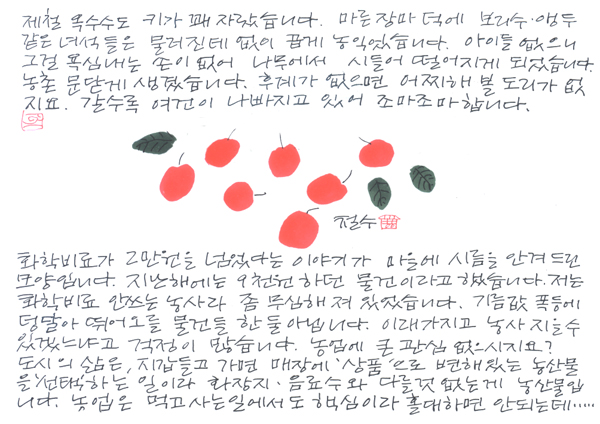 제철 옥수수도 키가 꽤 자랐습니다. 마른장마 덕에 보리수·앵두
같은 녀석들은 물러진데 없이 곱게 농익었습니다. 아이들 없으니
그걸 욕심내는 손이 없어 나무에서 시들어 떨어지게 되었습니다.
농촌 문닫게 생겼습니다. 후계가 없으면 어찌해 볼 도리가 없
지요. 갈수록 여건이 나빠지고 있어 조마조마합니다.
철수
화학비료가 2만원을 넘었다는 이야기가 마을에 시름을 안겨드린
모양입니다. 지난해에는 9천원 하던 물건이라고 했습니다. 저는
화학비료 안쓰는 농사라 좀 무심해져 있었습니다. 기름값 폭등에
덩달아 뛰어오를 물건들 한둘 아닙니다. 이래가지고 농사 지을수
있겠느냐고 걱정이 많습니다. 농업에 큰 관심 없으시지요?
도시의 삶은, 지갑들고 가면 매장에 '상품'으로 변해있는 농산물
을 '선택'하는 일이라 화장지·음료수와 다를것 없는게 농산물입
니다. 농업은 먹고사는일에서도 핵심이라 홀대하면 안되는데‥‥‥